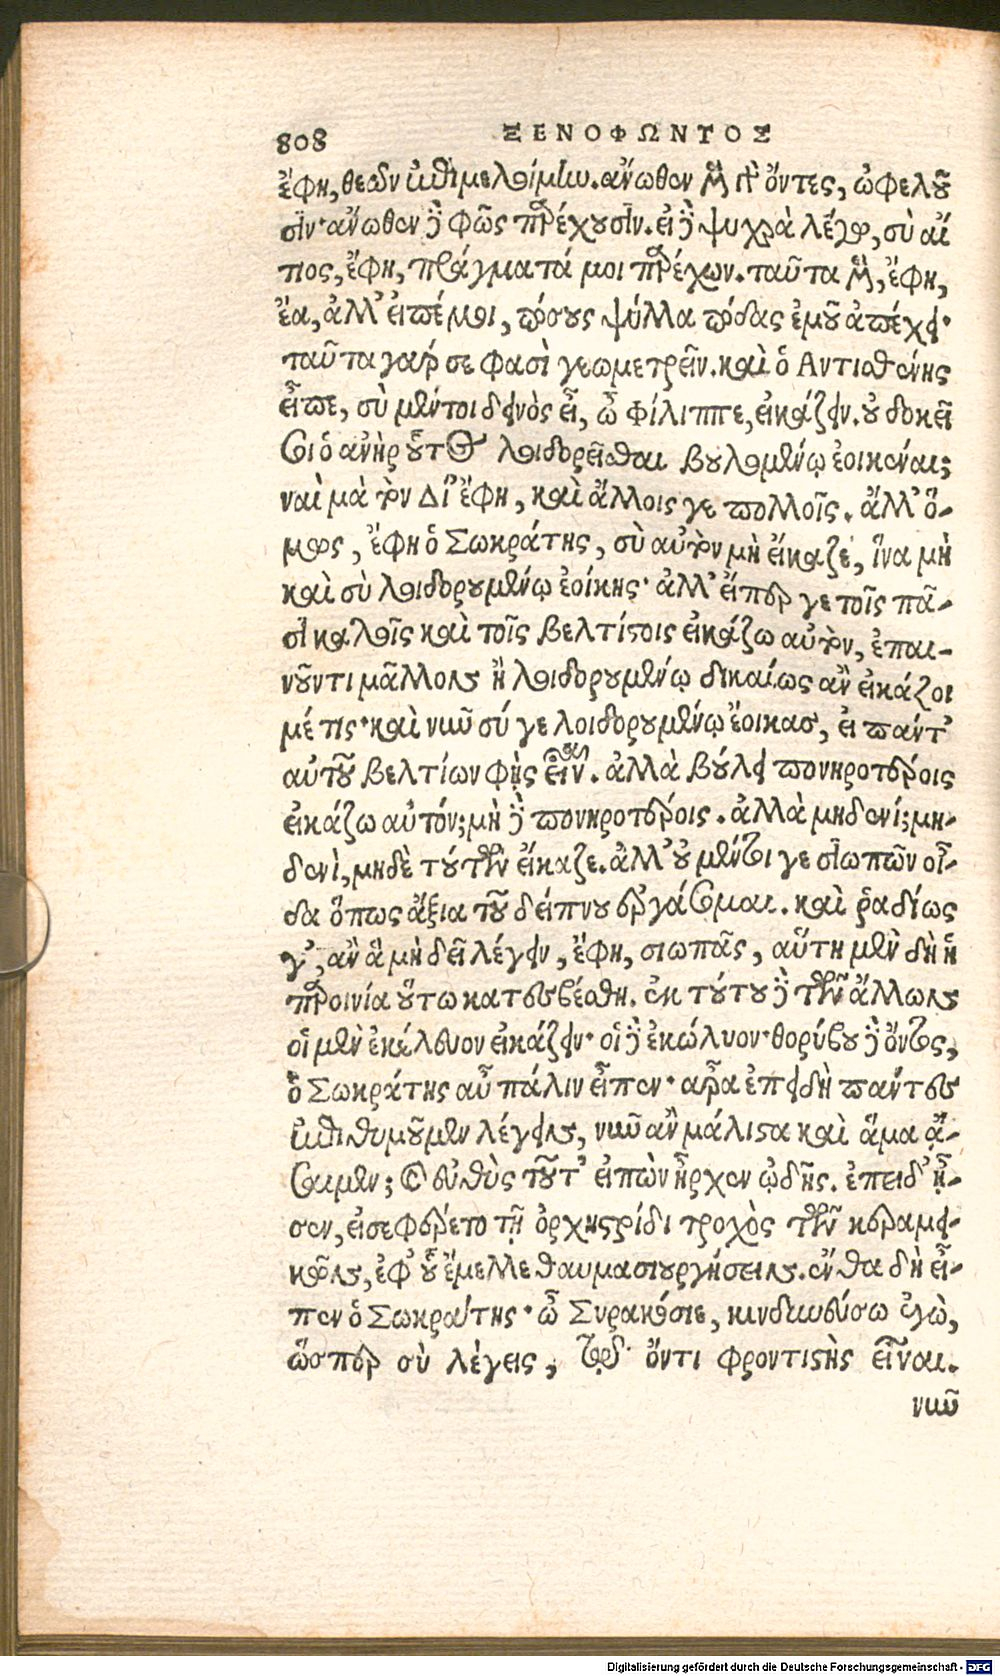 808 ΞΕΝΟΦΩΝΤΟΣ
ἔφη, θεῶν ἐπιμελοίμην. ἄνωθεν μὲν γὰρ ὄντες, ὠφελοῦ
σιν· ἄνωθεν δὲ φῶς παρέχουσιν. εἰ δὲ ψυχρὰ λέγω, σὺ αἴ
τιος, ἔφη, πράγματά μοι παρέχων. ταῦτα μὲν, ἔφη,
ἔα, ἀλλ' εἰπέ μοι, πόσους ψύλλα πόδας ἐμοῦ ἀπέχει·
ταῦτα γάρ σε φασὶ γεωμετρεῖν. καὶ ὁ Αντισθένης
εἶπε, σὺ μέντοι δεινὸς εἶ, ὦ Φίλιππε, εἰκάζειν. οὐ δοκεῖ
σοι ὁ ἀνὴρ οὗτος λοιδορεῖσθαι βουλομένῳ ἐοικέναι;
ναὶ μὰ τὸν Δί' ἔφη, καὶ ἄλλοις γε πολλοῖς. ἀλλ' ὅ-
μως, ἔφη ὁ Σωκράτης, σὺ αὐτὸν μὴ εἴκαζε, ἵνα μὴ
καὶ σὺ λοιδορουμένῳ ἐοίκης· ἀλλ' εἴπερ γε τοῖς πᾶ-
σι καλοῖς καὶ τοῖς βελτίστοις εἰκάζω αὐτὸν, ἐπαι-
νοῦντι μᾶλλον ἢ λοιδορουμένῳ δικαίως ἂν εἰκάζοι
μέ τις· καὶ νῦν σύ γε λοιδορουμένῳ ἔοικας, εἰ πάντ'
αὐτοῦ βελτίων φῂς εἶναι. ἀλλὰ βούλει πονηροτέροις
εἰκάζω αὐτόν; μὴ δὲ πονηροτέροις. ἀλλὰ μηδενί; μη-
δενὶ, μηδὲ τούτων εἴκαζε. ἀλλ' οὐ μέντοι γε σιωπῶν οἶ-
δα ὅπως ἄξια τοῦ δείπνου ἐργάσομαι. καὶ ῥᾳδίως
γ', ἂν ἃ μὴ δεῖ λέγειν, ἔφη, σιωπᾷς, αὕτη μὲν δὴ ἡ
παροινία οὕτω κατεσβέσθη. ἐκ τούτου δὲ τῶν ἄλλων
οἱ μὲν ἐκέλευον εἰκάζειν· οἱ δὲ ἐκώλυον· θορύβου δὲ ὄντος,
ὁ Σωκράτης αὖ πάλιν εἶπεν· ἆρα ἐπειδὴ πάντες
ἐπιθυμοῦμεν λέγειν, νῦν ἂν μάλιστα καὶ ἅμα ᾄ-
σαιμεν; καὶ εὐθὺς τοῦτ' εἰπὼν ἦρχεν ᾠδῆς. ἐπειδ' ᾖ-
σεν, εἰσεφέρετο τῇ ὀρχηστρίδι τροχὸς τῶν κεραμει-
κῶν, ἐφ' οὗ ἔμελλε θαυμασιουργήσειν. ἔνθα δὴ εἶ-
πεν ὁ Σωκράτης· ὦ Συρακόσιε, κινδυνεύσω ἐγὼ,
ὥσπερ σὺ λέγεις, τῷ ὄντι φροντιστὴς εἶναι.
νῦν
Digitalisierung gefördert durch die Deutsche Forschungsgemeinschaft - DFG